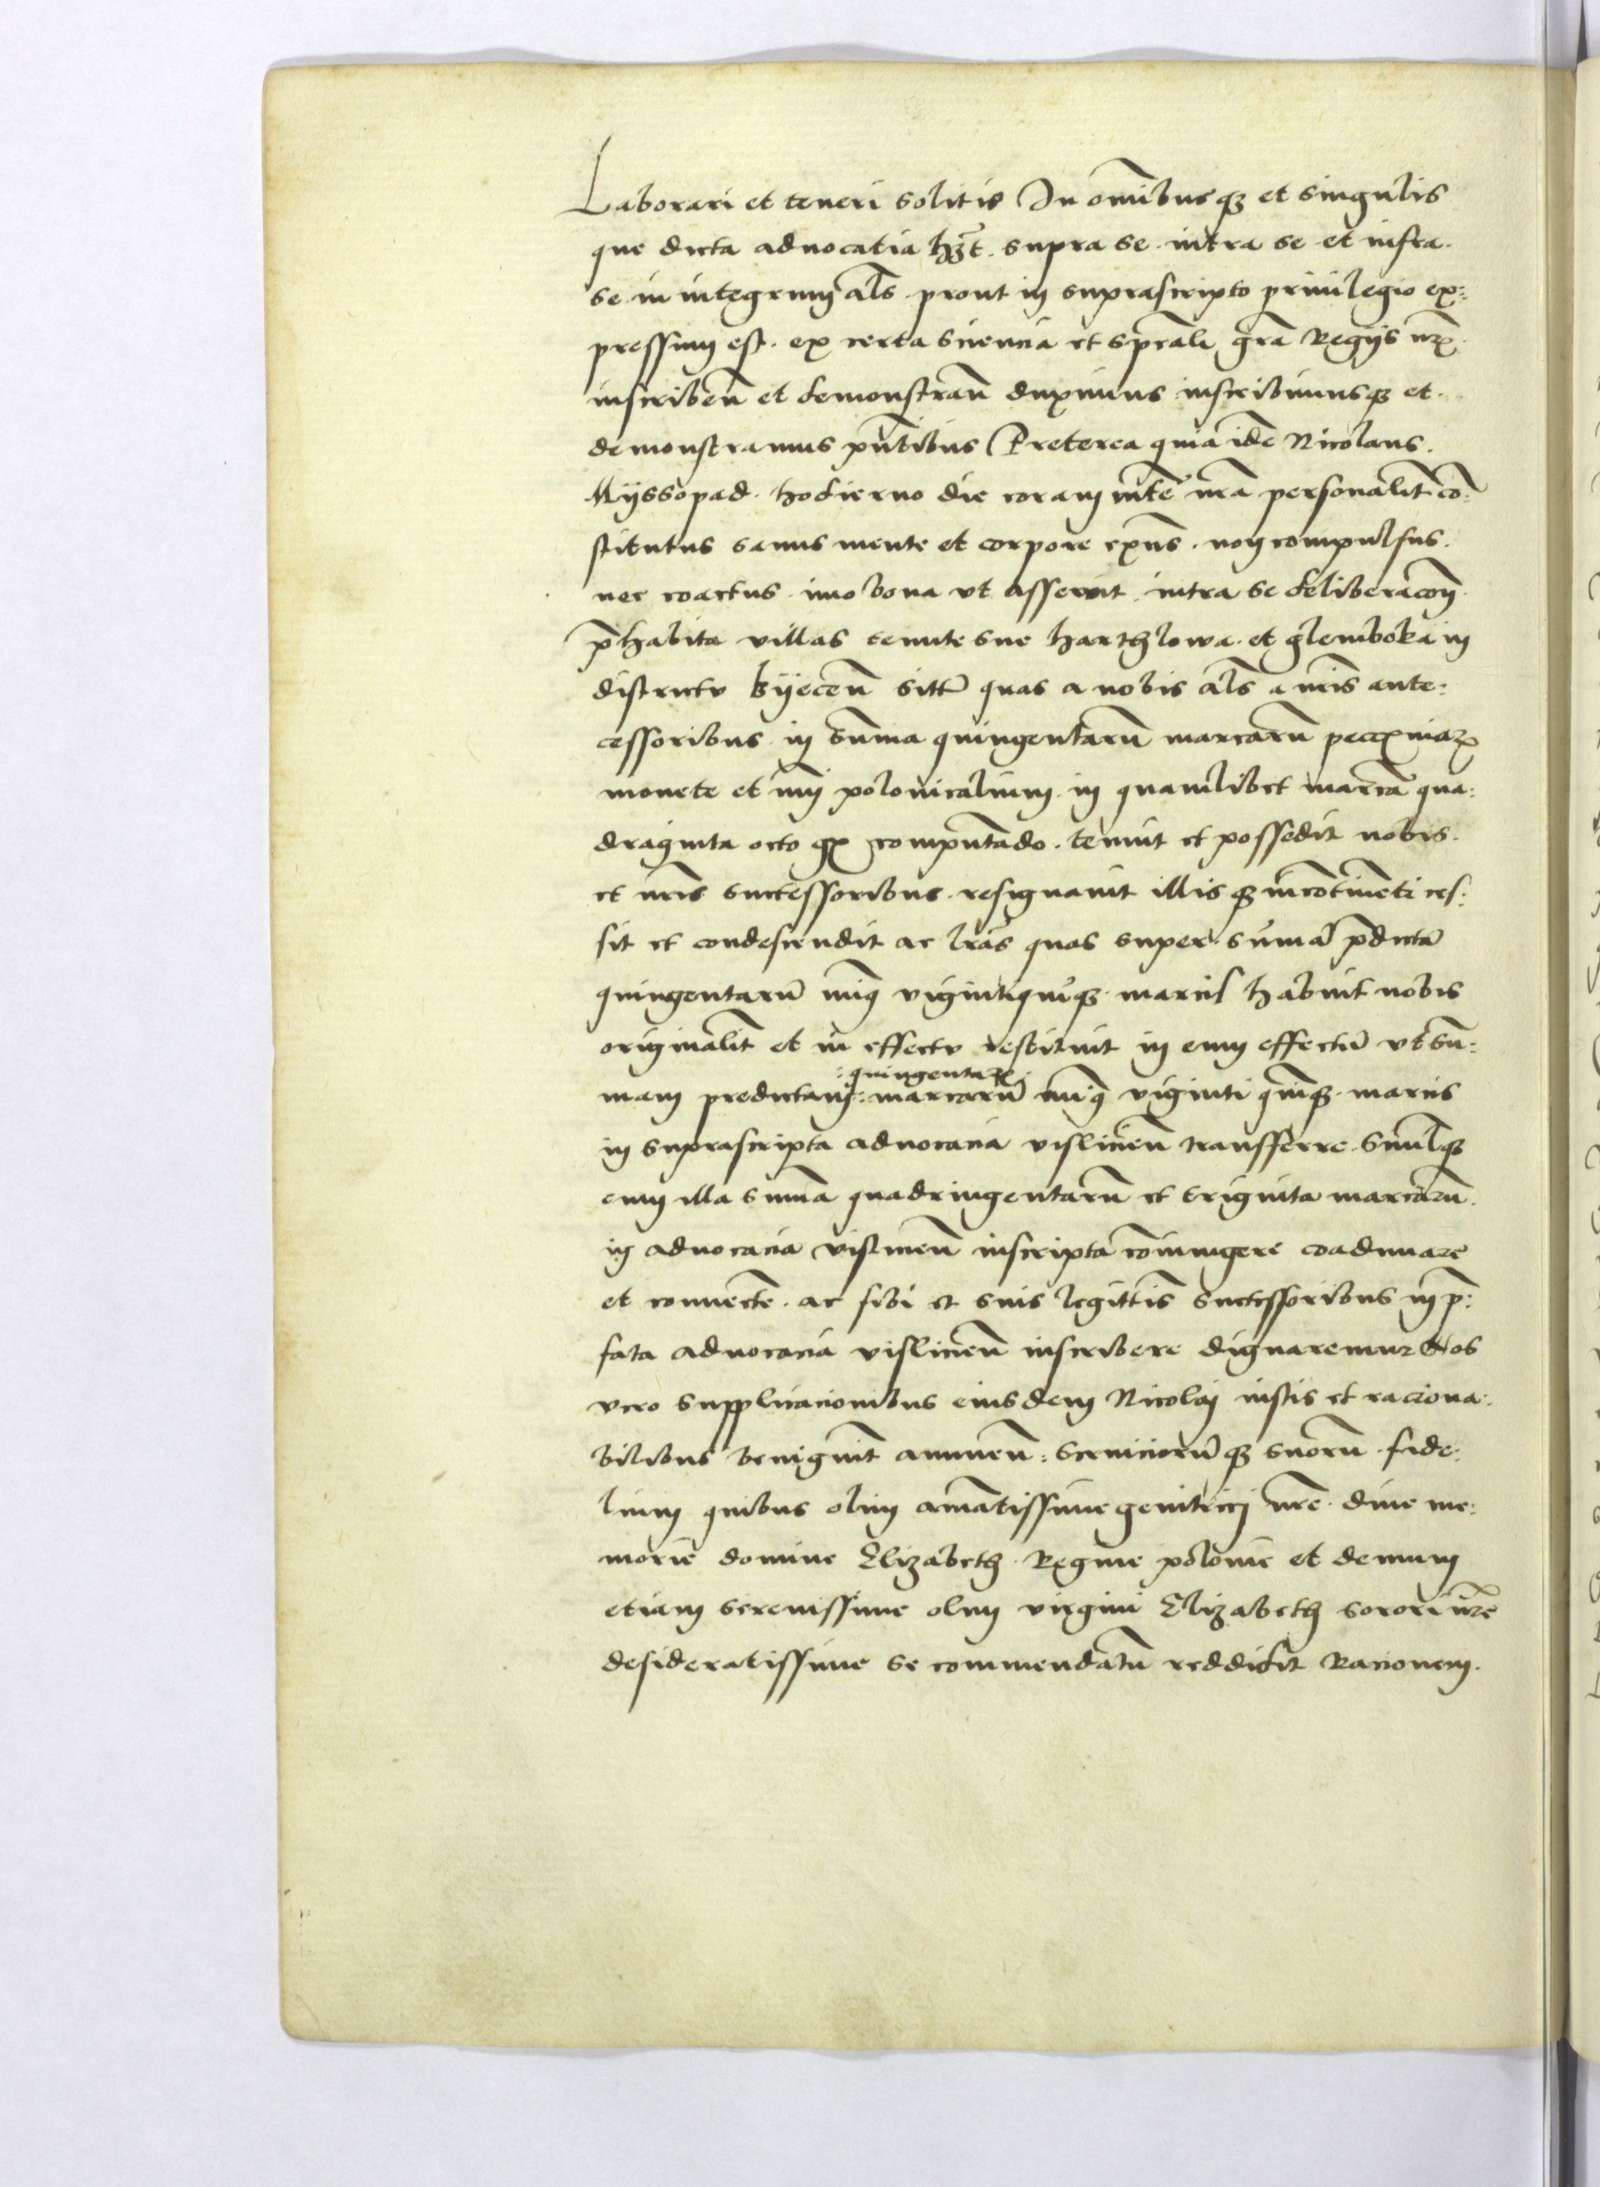 Laborari et teneri solitis In om̄ibusq̨ et singulis
que dicta aduocatia hȝt. supra se. intra se. et infra.
se. in integrum als prout in suprascripto priuilegio ex:
pressum est. ex certa sciencia et sp̄cali gr̄a Regijs nr̄
inscriben̄ et demonstran̄ duximus inscribimusq̨ et.
demonstramus pn̄tibus Preterea quia idē Nicolaus.
Myssopad. hodierno die coram m̄te nr̄a personalit̄ cō:
stitutus sanus mente et corpore exn̄s. non compulsus.
nec coactus. imo bona vt asseruit. intra se deliberacōn
p̄habita villas tenute sue harthlowa. et glemboka in
districtu Byecen̄ sitt̄ quas a nobis als a nr̄is ante:
cessoribus. in sum̄a quingentarū marcarū pecuniaȝ
monete et nūi polonicalium. in quamlibet marcā qua:
draginta octo gr̄ computādo. tenuit et possedit nobis.
et nr̄is successoribus. resignauit illisq̨ incōtinēti ces:
sit et condescendit ac lr̄as quas super. sūmā p̄dictā
quingentarū viginti quīq̨ marcis habuit nobis
originalit̄ et in effectu restituit in eum effectū vt sū:
mam predictam: :quingentaȝ: marcarū viginti quīq̨ marcis
in suprascripta aduocacia vislicien̄ transferre. Simulq̨
cum illa suma quadringentarū et triginta marcarū.
in aduocacia vislicien̄ inscripta cōiungere coadunare
et connectē. ac sibi et suis legittīs successoribus in p̄:
fata aduocacia vislicien̄ inscribere dignaremur Nos
vero supplicacionibus eiusdem Nicolaj iustis et raciona:
bilibus benignit̄ annuen̄: seruiciorūq̨ suorū. fide:
lium quibus olim amātissime genitricj nr̄e. diue me:
morie domine Elizabeth. Regine polonie et demum
etiam serenissime olim virgini Elizabeth sorori nr̄e
desideratissime se commendatū reddidit Racionem.